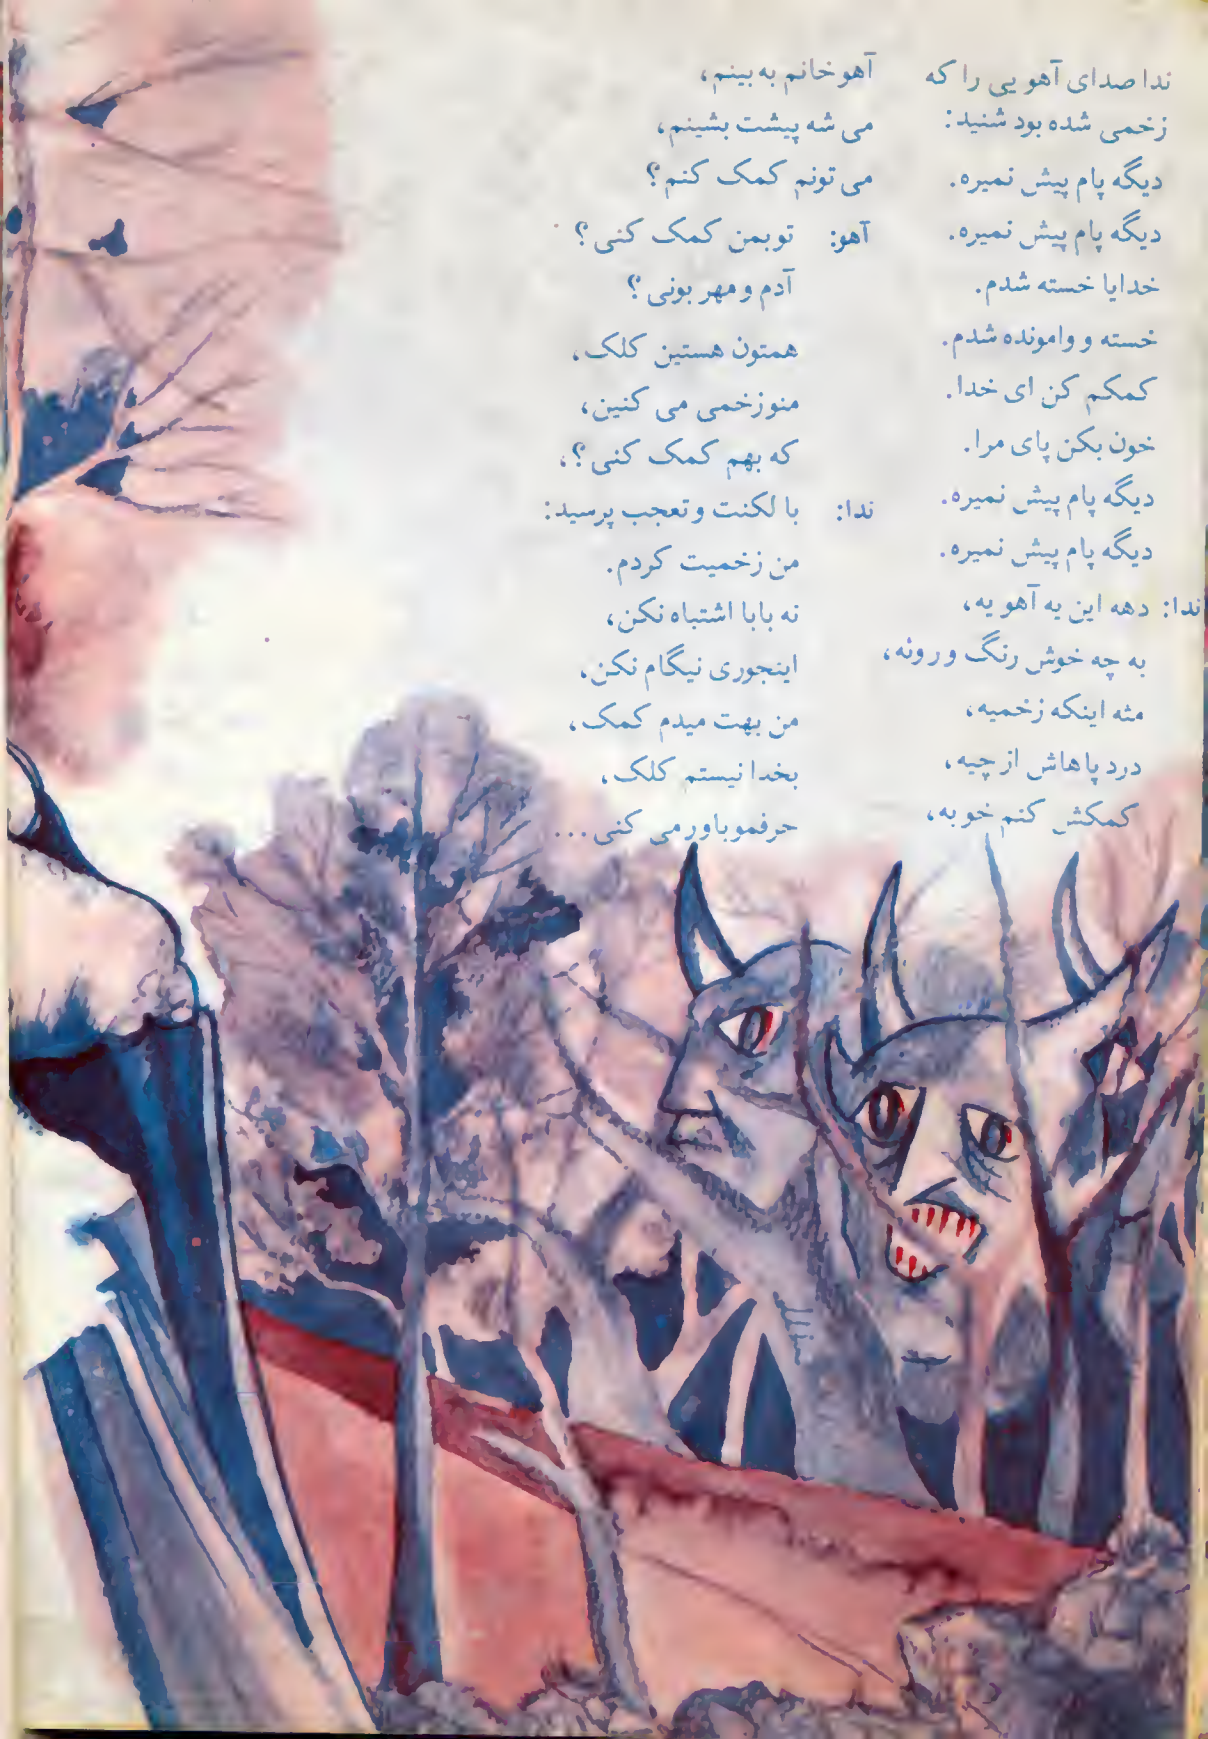 ندا صدای آهو یی را که
زخمی شده بود شنید:
دیگه پام پیش نمیره.
دیگه پام پیش نمیره.
خدایا خسته شدم.
خسته و وامونده شدم.
کمکم کن ای خدا.
خون بکن پای مرا.
دیگه پام پیش نمیره.
دیگه پام پیش نمیره.
ندا: دهه این یه آهو یه،
به چه خوش رنگ و رونه،
مثه اینکه زخمیه،
درد پاهاش از چیه،
کمکش کنم خوبه،
آهو خانم به بینم،
می شه پیشت بشینم،
می تونم کمک کنم؟
آهو: تو بمن کمک کنی؟
آدم و مهر بونی؟
همتون هستین کلک،
منو زخمی می کنین،
که بهم کمک کنی؟،
ندا: با لکنت و تعجب پرسید:
من زخمیت کردم.
نه بابا اشتباه نکن،
اینجوری نیگام نکن،
من بهت میدم کمک،
بخدا نیستم کلک،
حرفمو باور می کنی...